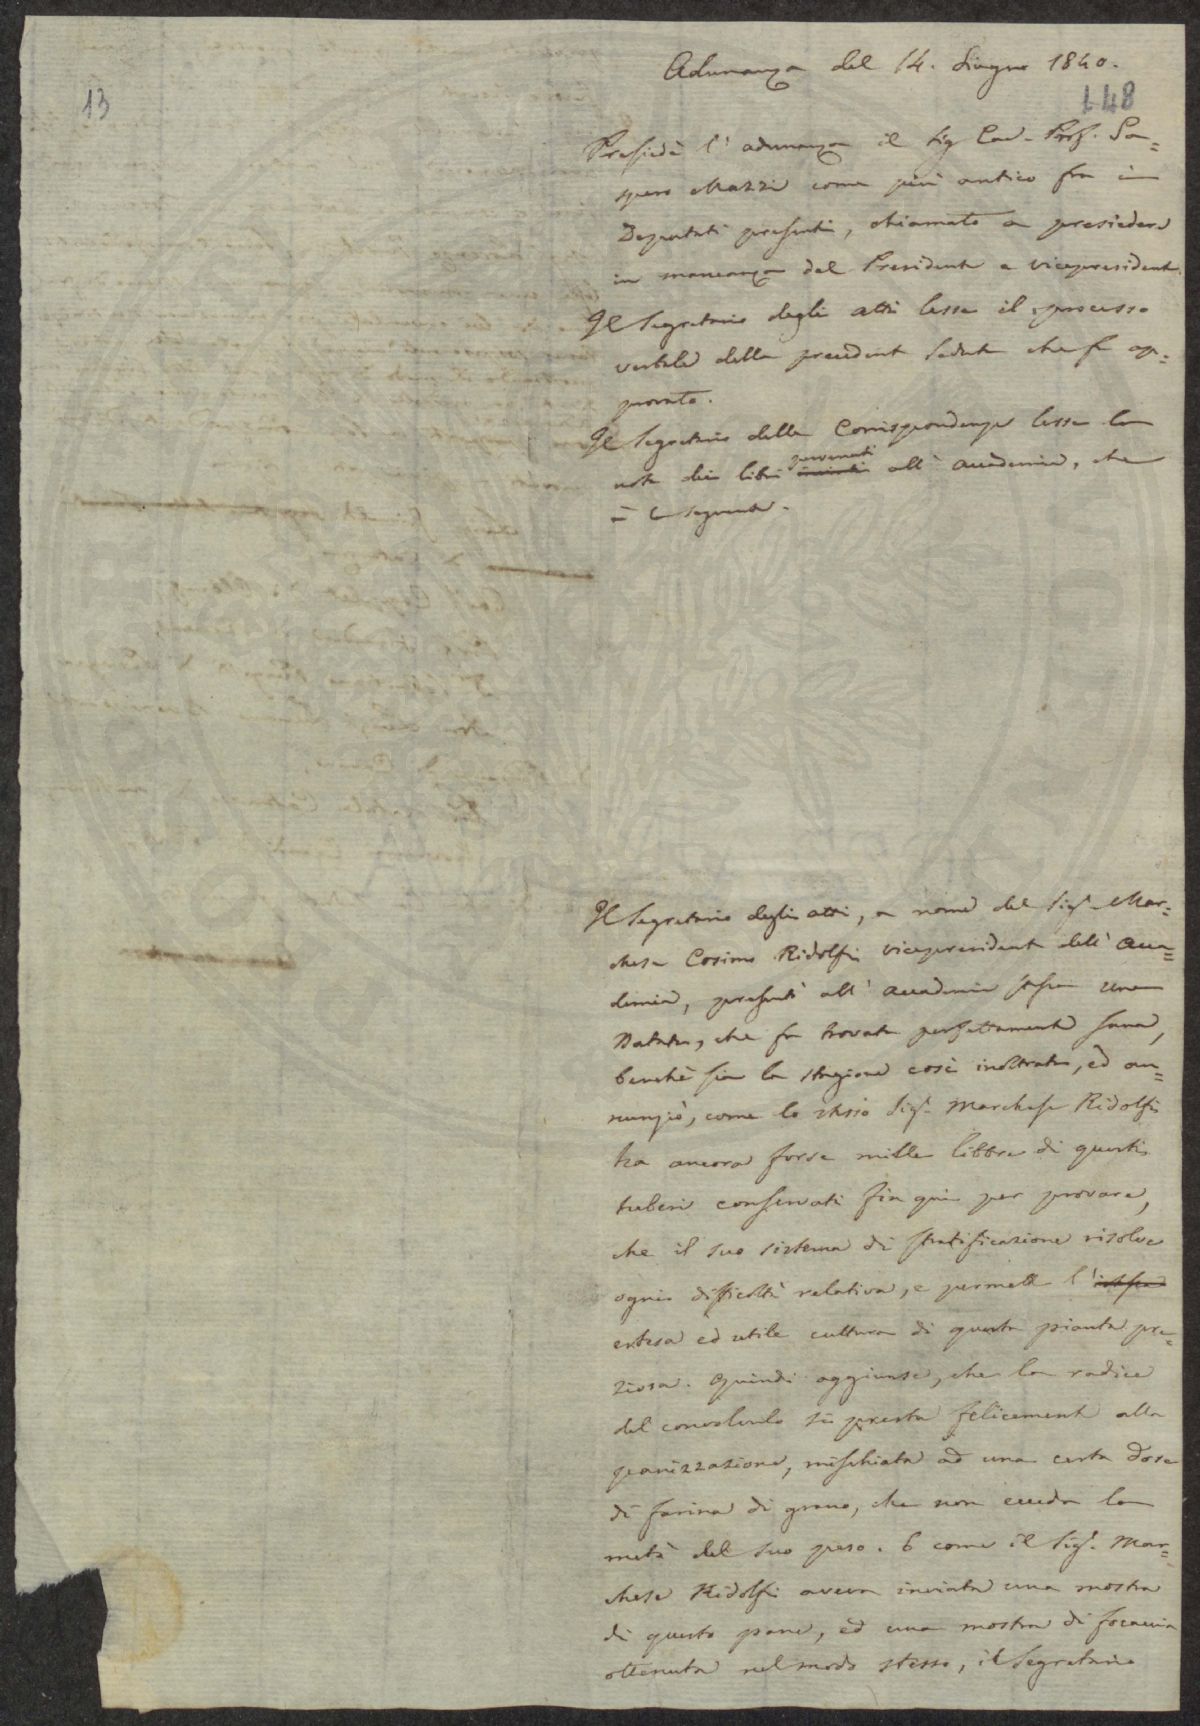 Adunanza del 14. Giugno 1840.
13
148
Presiedè l'adunanza il Sig Cav. Prof. Ga=
spero Mazzi come più antico fra i
Deputati presenti, chiamato a presiedere
in mancanza del Presidente e vicepresidente.
Il Segretario degli atti lesse il processo
verbale della precedente seduta che fu ap=
provato.
Il Segretario della Corrispondenza lesse la
pervenuti
nota dei libri inviati all'accademia, che
è la seguente.
Il Segretario degli atti, a nome del Sig.r Mar=
chese Cosimo Ridolfi vicepresidente dell'acca=
demia, presentò all'accademia stessa una
Batata, che fu trovata perfettamente sana,
benchè sia la stagione così inoltrata, ed an=
nunziò, come lo stesso Sig.r Marchese Ridolfi
ha ancora forse mille libbre di questi
tuberi conservati fin qui per provare,
che il suo sistema di stratificazione risolve
ogni difficoltà relativa, e permette l'
estesa ed utile cultura di questa pianta pre=
ziosa. Quindi aggiunse, che la radice
del convolvulo si presta felicemente alla
panizzazione, mischiata ad una certa dose
di farina di grano, che non ecceda la
metà del suo peso. E come il Sig.r Mar=
chese Ridolfi aveva inviata una mostra
di questo pane, ed una mostra di focaccia
ottenuta nel modo stesso, il Segretario